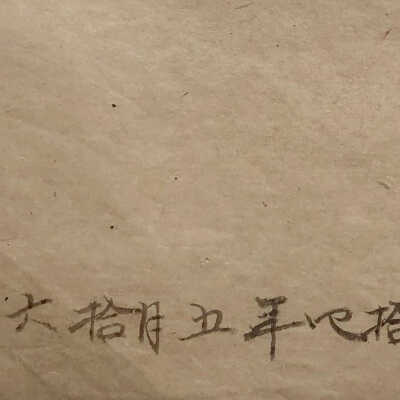 拾四年五月拾六